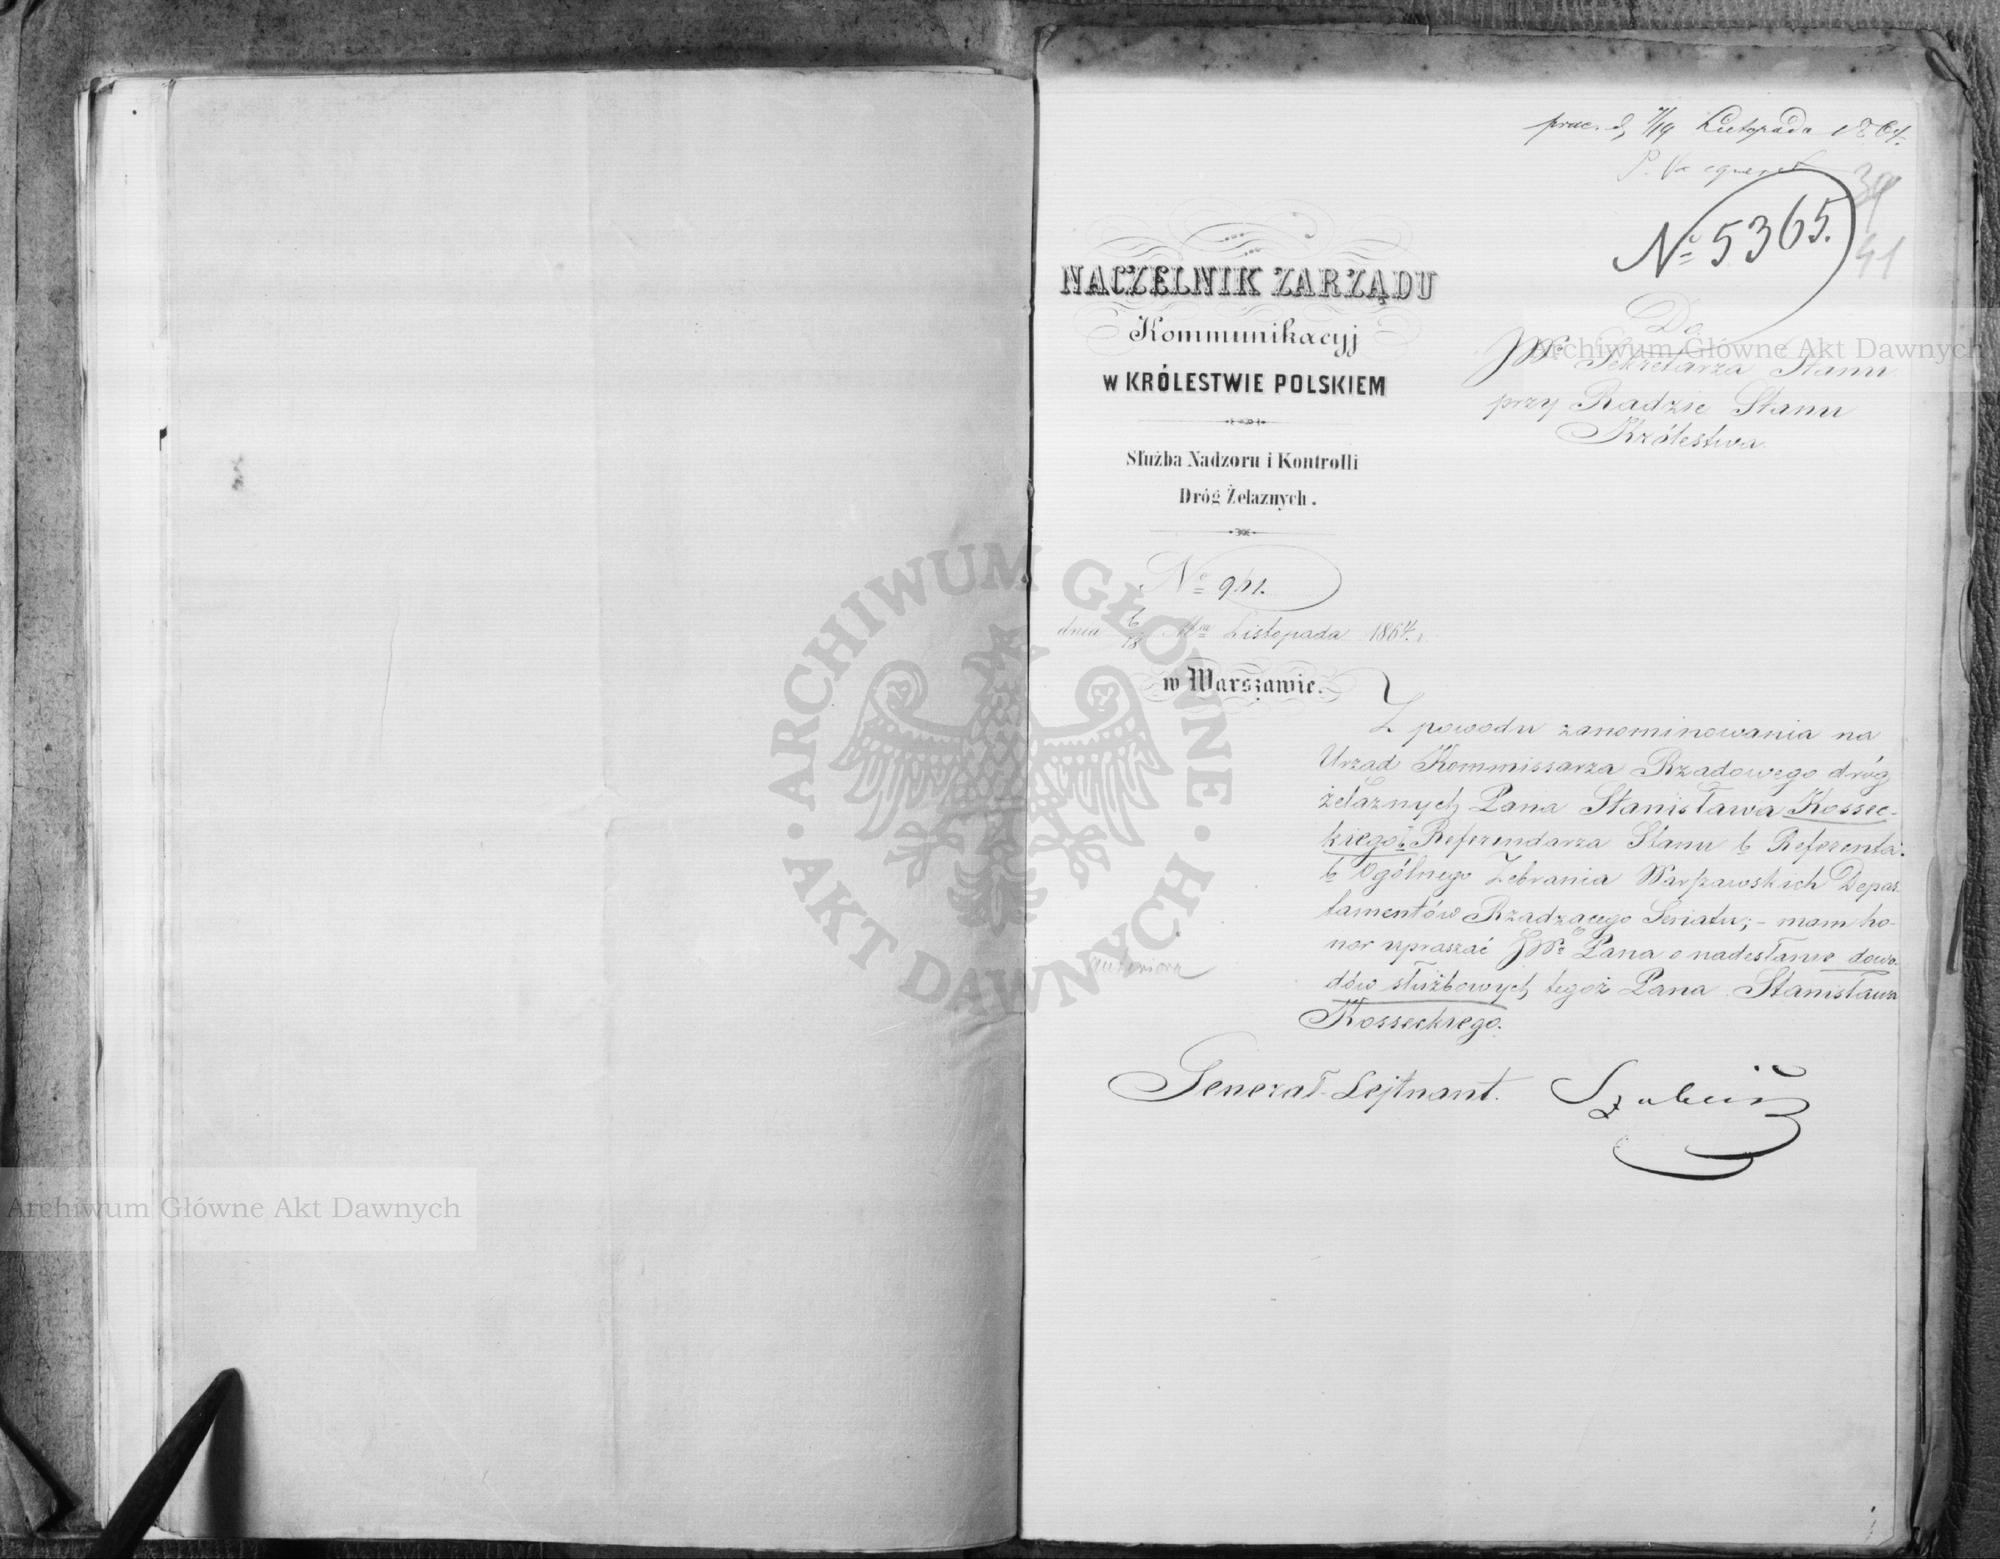 prae. d, 7/19 Listopada 1864.
39
No 5365.
41
NACZELNIK ZARZĄDU
Kommunikacyj
w KRÓLESTWIE POLSKIEM
Służba Nadzoru i Kontrolli
Dróg Żelaznych.
No 961.
dnia 6/18 Mca Listopada 1864 r.
w Warszawie.
Do
JWo Sekretarza Stanu
przy Radzie Stanu
Królestwa
Z powodu zanominowania na
Urząd Kommissarza Rządowego dróg
żelaznych Pana Stanisława Kossec-
kiego b. Referendarza Stanu b. Referenta
b. Ogólnego Zebrania Warszawskich Depar-
tamentów Rządzącego Senatu; - mam ho-
nor upraszać JWo Pana o nadesłanie dowo-
dów służbowych tegoż Pana Stanisława
Kosseckiego.
Generał-Lejtnant.
Archiwum Główne Akt Dawnych
ARCHIWUM GŁÓWNE
AKT DAWNYCH
Archiwum Główne Akt Dawnych